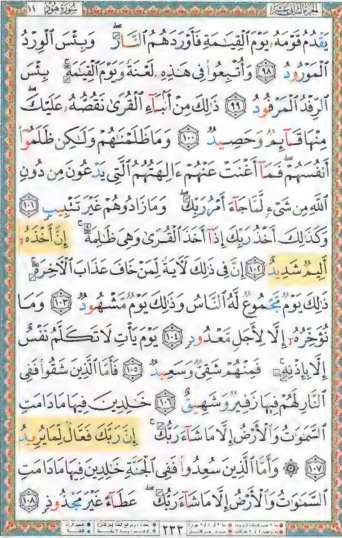 سورة هود ١١
يَقْدُمُ قَوْمَهُۥ يَوْمَ ٱلْقِيَـٰمَةِ فَأَوْرَدَهُمُ ٱلنَّارَ ۖ وَبِئْسَ ٱلْوِرْدُ
ٱلْمَوْرُودُ ٩٨ وَأُتْبِعُوا۟ فِى هَـٰذِهِۦ لَعْنَةً وَيَوْمَ ٱلْقِيَـٰمَةِ ۚ بِئْسَ
ٱلرِّفْدُ ٱلْمَرْفُودُ ٩٩ ذَٰلِكَ مِنْ أَنۢبَآءِ ٱلْقُرَىٰ نَقُصُّهُۥ عَلَيْكَ ۖ
مِنْهَا قَآئِمٌ وَحَصِيدٌ ١٠٠ وَمَا ظَلَمْنَـٰهُمْ وَلَـٰكِن ظَلَمُوٓا۟
أَنفُسَهُمْ ۖ فَمَآ أَغْنَتْ عَنْهُمْ ءَالِهَتُهُمُ ٱلَّتِى يَدْعُونَ مِن دُونِ
ٱللَّهِ مِن شَىْءٍ لَّمَّا جَآءَ أَمْرُ رَبِّكَ ۖ وَمَا زَادُوهُمْ غَيْرَ تَتْبِيبٍ ١٠١
وَكَذَٰلِكَ أَخْذُ رَبِّكَ إِذَآ أَخَذَ ٱلْقُرَىٰ وَهِىَ ظَـٰلِمَةٌ ۚ إِنَّ أَخْذَهُۥٓ
أَلِيمٌ شَدِيدٌ ١٠٢ إِنَّ فِى ذَٰلِكَ لَـَٔايَةً لِّمَنْ خَافَ عَذَابَ ٱلْـَٔاخِرَةِ ۚ
ذَٰلِكَ يَوْمٌ مَّجْمُوعٌ لَّهُ ٱلنَّاسُ وَذَٰلِكَ يَوْمٌ مَّشْهُودٌ ١٠٣ وَمَا
نُؤَخِّرُهُۥٓ إِلَّا لِأَجَلٍ مَّعْدُودٍ ١٠٤ يَوْمَ يَأْتِ لَا تَكَلَّمُ نَفْسٌ
إِلَّا بِإِذْنِهِۦ ۚ فَمِنْهُمْ شَقِىٌّ وَسَعِيدٌ ١٠٥ فَأَمَّا ٱلَّذِينَ شَقُوا۟ فَفِى
ٱلنَّارِ لَهُمْ فِيهَا زَفِيرٌ وَشَهِيقٌ ١٠٦ خَـٰلِدِينَ فِيهَا مَا دَامَتِ
ٱلسَّمَـٰوَٰتُ وَٱلْأَرْضُ إِلَّا مَا شَآءَ رَبُّكَ ۚ إِنَّ رَبَّكَ فَعَّالٌ لِّمَا يُرِيدُ
١٠٧ ۞ وَأَمَّا ٱلَّذِينَ سُعِدُوا۟ فَفِى ٱلْجَنَّةِ خَـٰلِدِينَ فِيهَا مَا دَامَتِ
ٱلسَّمَـٰوَٰتُ وَٱلْأَرْضُ إِلَّا مَا شَآءَ رَبُّكَ ۖ عَطَآءً غَيْرَ مَجْذُوذٍ ١٠٨
٢٣٣